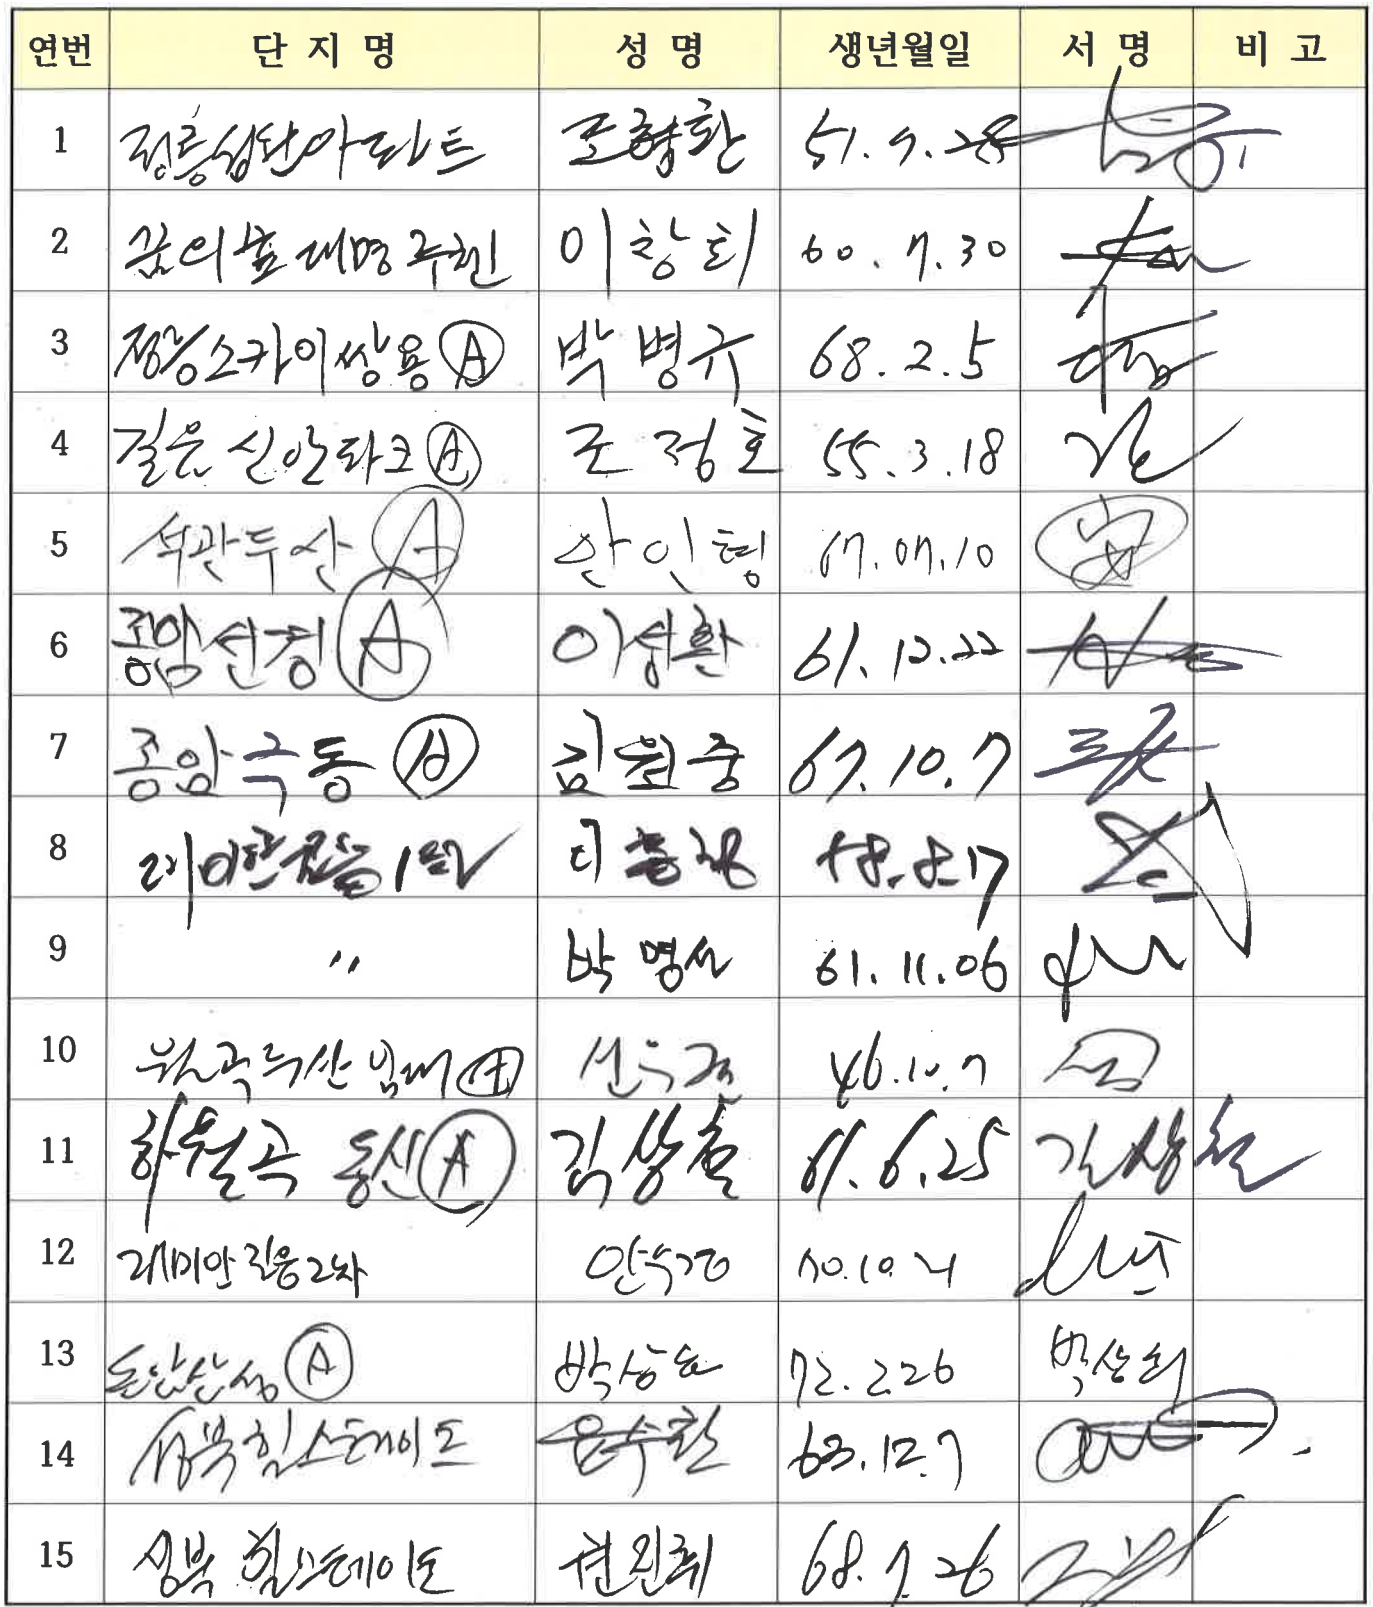 연번 단지명 성명 생년월일 서명 비고
1 정릉힐탑아파트 조형환 51.9.28
2 꿈의숲대명루첸 이창희 60.7.30
3 정릉스카이쌍용Ⓐ 박병규 68.2.5
4 길음신안파크Ⓐ 조정호 55.3.18
5 석관두산Ⓐ 안인형 67.07.10
6 종암선경Ⓐ 이성환 61.12.22
7 종암극동Ⓐ 김원중 67.10.7
8 8.8.17
9 〃 박명서 61.11.06
10 월곡두산임대Ⓐ 46.10.7
11 하월곡 동신Ⓐ 김상철 61.6.25 김상철
12 래미안길음2차 안수경 70.10.21
13 돈암삼성Ⓐ 박상희 72.2.26 박상희
14 성북힐스테이트 윤수환 63.12.7
15 성북 힐스테이트 68.7.26